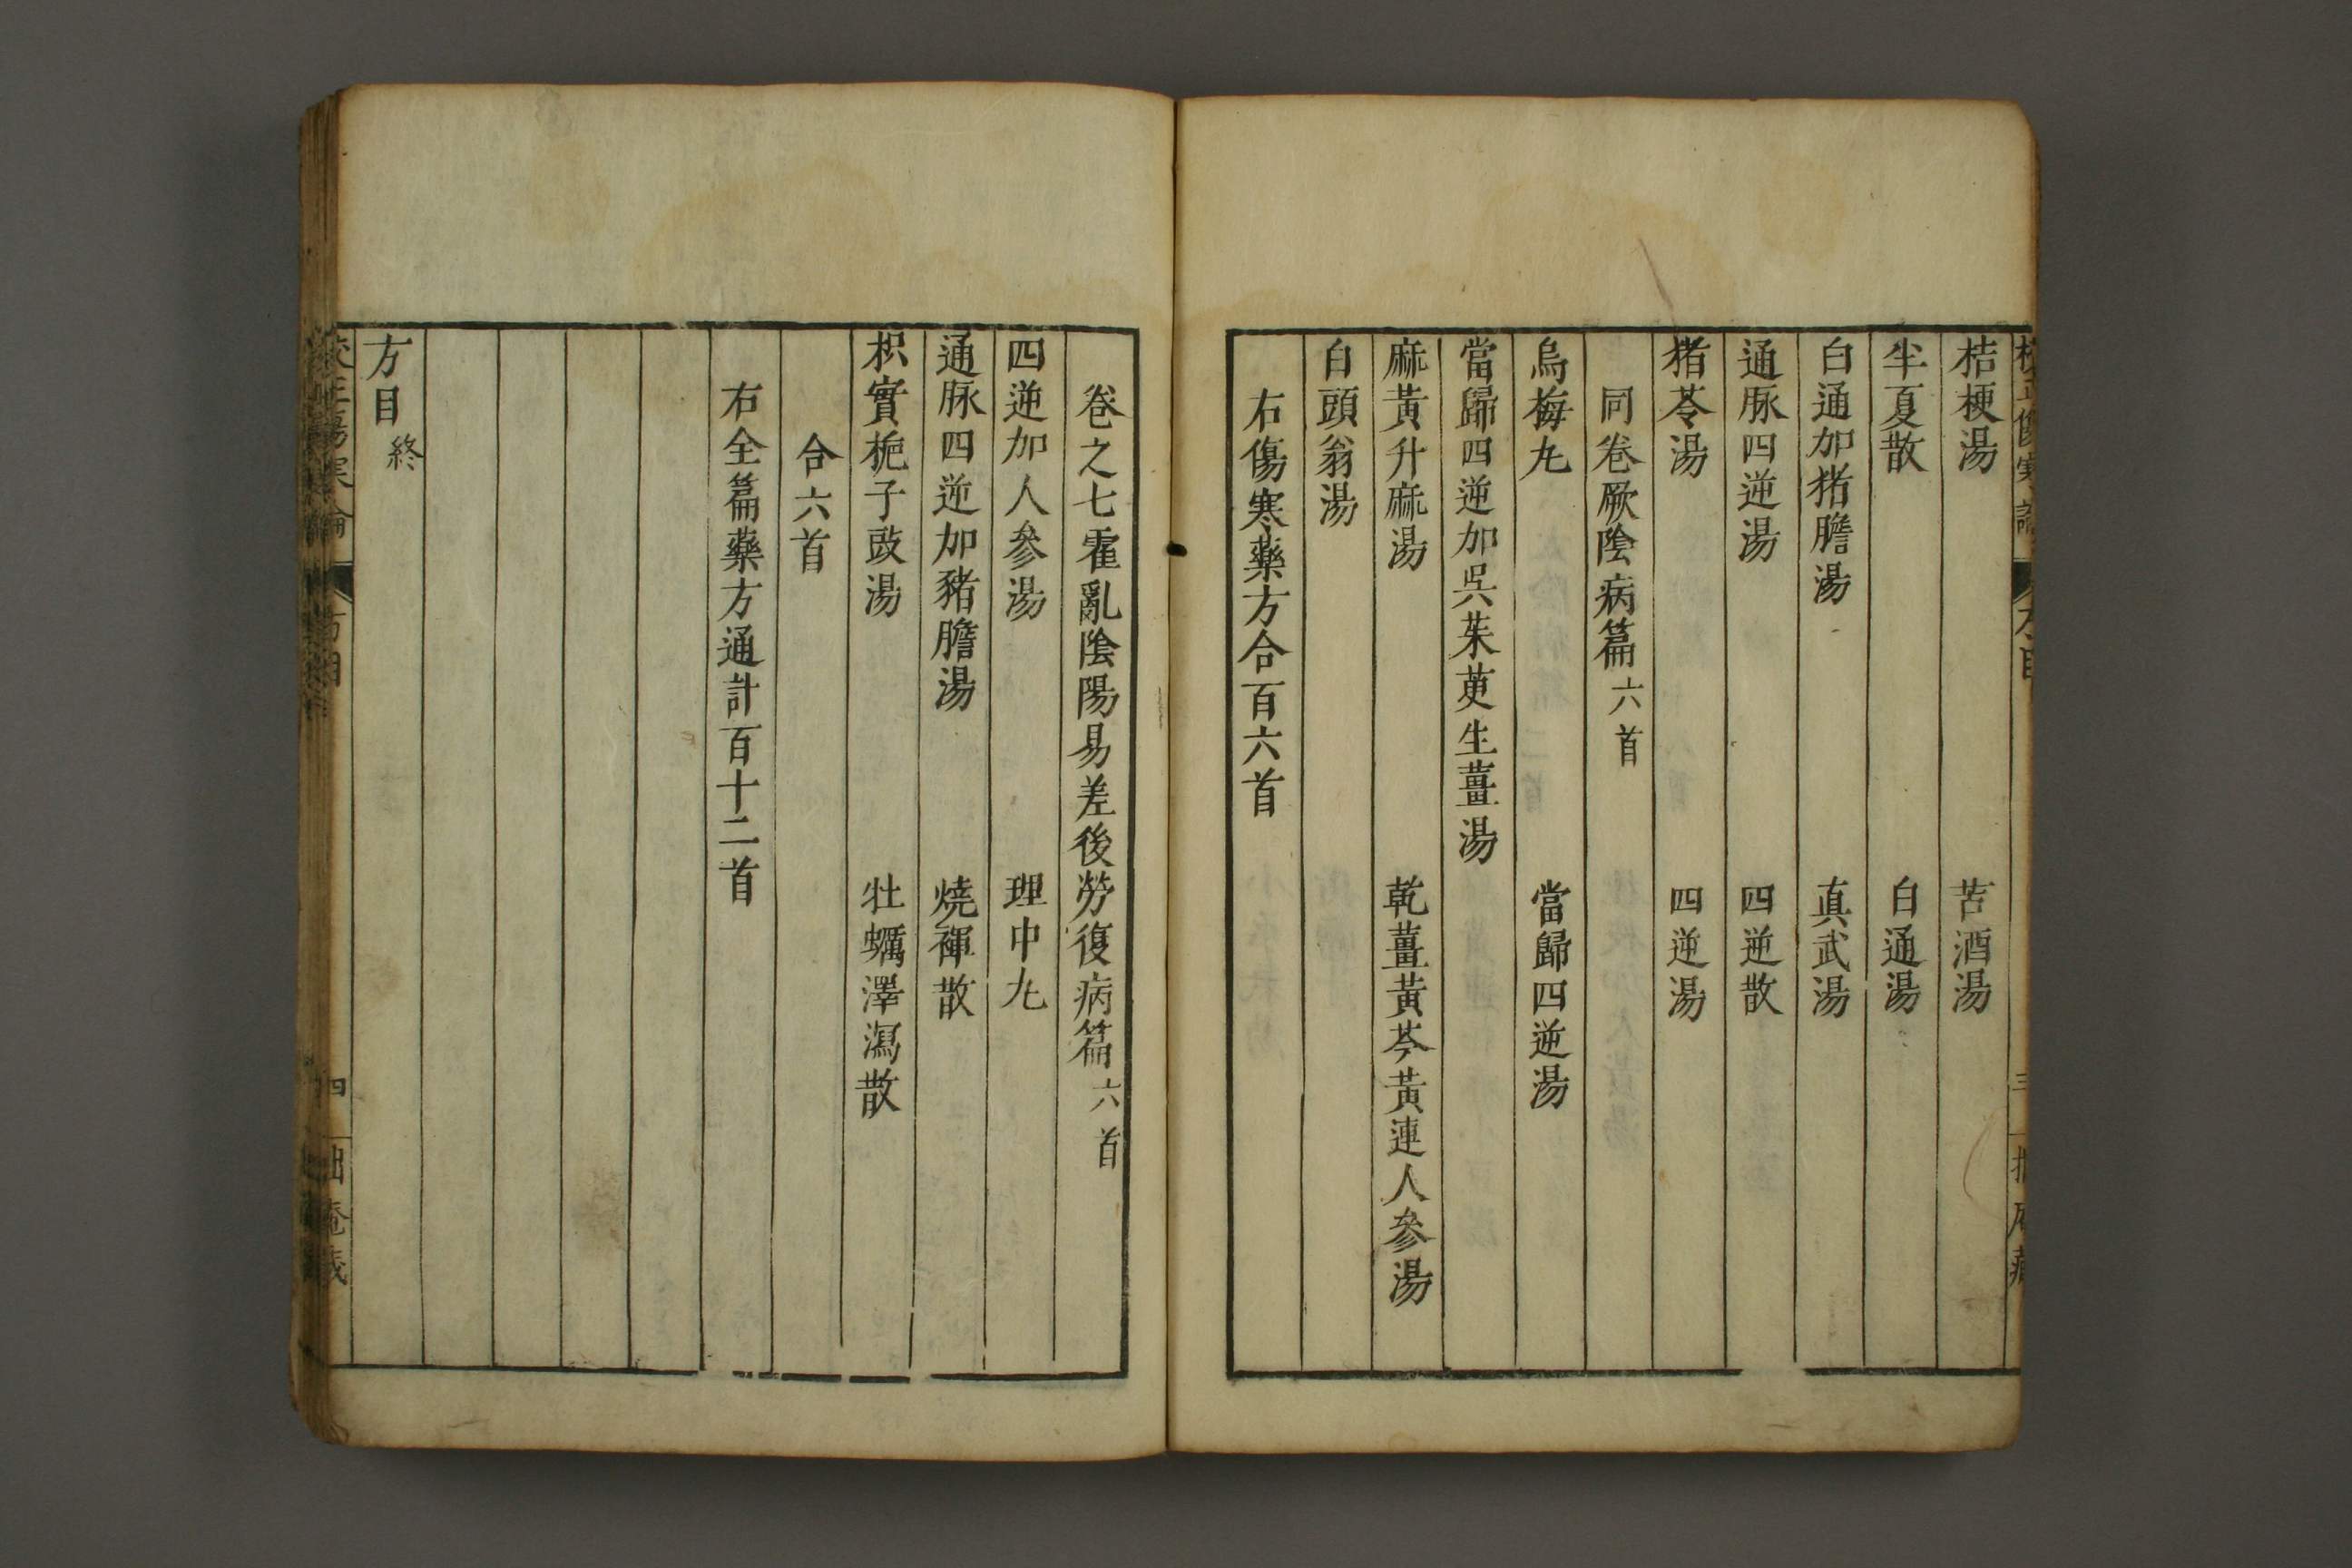 桔梗湯　苦酒湯
半夏散　白通湯
白通加猪膽湯　真武湯
通脉四逆湯　四逆散
猪苓湯　四逆湯
同卷厥陰病篇六首
烏梅丸　當歸四逆湯
當歸四逆加呉茱萸生薑湯
麻黃升麻湯　乾薑黃芩黃連人參湯
白頭翁湯
右傷寒藥方合百六首
卷之七霍亂陰陽易差後勞復病篇六首
四逆加人參湯　理中丸
通脉四逆加豬膽湯　燒褌散
枳實梔子豉湯　牡蠣澤瀉散
合六首
右全篇藥方通計百十二首
方目終